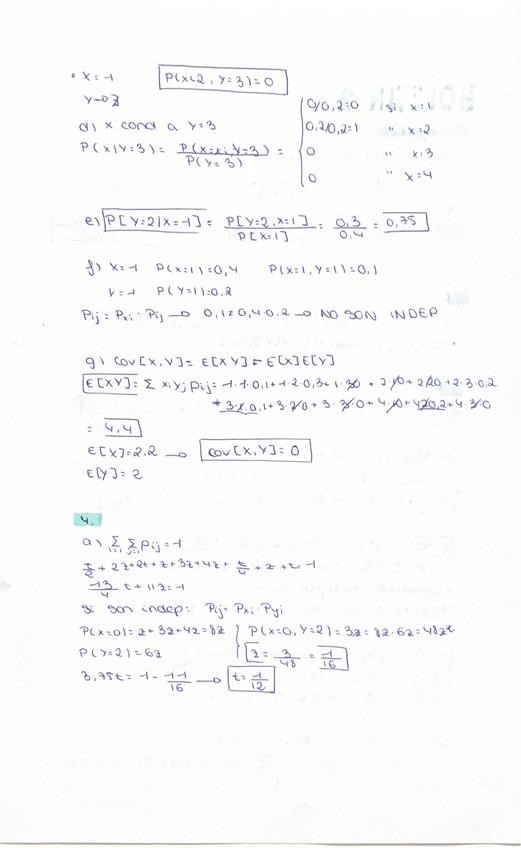 • x = 1   P(x<2, Y=3)=0
Y→3
d) x cond a Y=3
P(x|Y=3) = P(x=xi, Y=3) / P(Y=3) = { 0/0,2=0   si x=1
0,2/0,2=1   " x=2
0   " x=3
0   " x=4
e) P[Y=2|X=1] = P[Y=2, X=1] / P[X=1] = 0,3 / 0,4 = 0,75
f) x=1   P(x=1)=0,4   P(x=1, Y=1)=0,1
Y=1   P(Y=1)=0,2
Pij = Pxi · Pij → 0,1≠0,4·0,2 → NO SON INDEP
g) COV[X,Y] = E[XY] - E[X]E[Y]
E[XY] = Σ xi yj pij = 1·1·0,1+1·2·0,3+1·3·0 + 2·1·0 + 2·2·0 + 2·3·0,2
+ 3·1·0,1+3·2·0 + 3·3·0+4·1·0+4·2·0,2+4·3·0
= 4,4
E[X]=2,2 → COV[X,Y]=0
E[Y]=2
4.
a) Σ i=1 Σ j=1 pij = 1
t/2 + 2z+2t+z+3z+4z+ t/4 + z + t = 1
13/4 t + 11z = 1
Si son indep: Pij = Pxi · Pyi
P(x=0) = z+3z+4z = 8z } P(x=0, Y=2) = 3z = 8z·6z = 48z²
P(Y=2) = 6z   z = 3/48 = 1/16
3,75t = 1 - 11/16 → t = 1/12